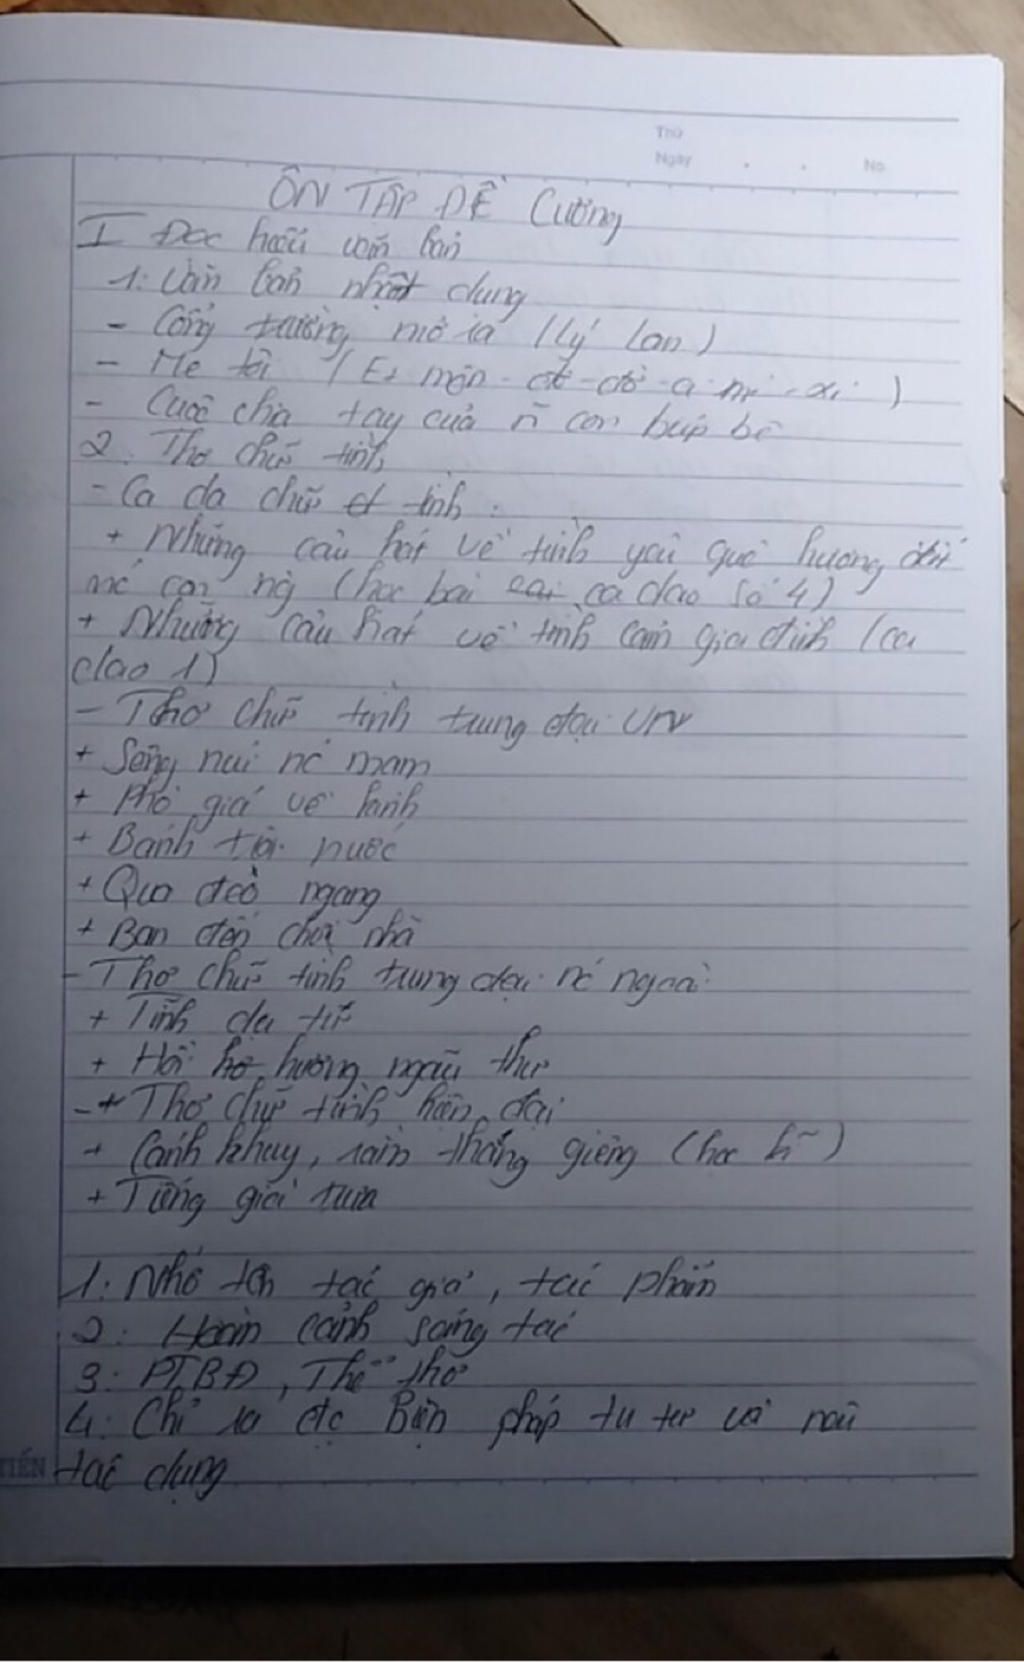 Thứ
Ngày . . No.
ÔN TẬP ĐỀ Cương
I Đọc hiểu văn bản
1: Văn bản nhật dụng
- Cổng trường mở ra (Lý Lan)
- Mẹ tôi (Ét môn - đô - đờ - a mi - xi)
- Cuộc chia tay của ~ con búp bê
2. Thơ chữ tình
- Ca da chữ tình :
+ Những câu hát về tình yêu quê hương đất
nc con ng (học bài ca dao số 4)
+ Những câu hát về tình cảm gia đình (ca
dao 1)
- Thơ chữ tình trung đại VN
+ Sông núi nc nam
+ Phò giá về kinh
+ Bánh trôi nước
+ Qua đèo ngang
+ Bạn đến chơi nhà
- Thơ chữ tình trung đại nc ngoài
+ Tĩnh dạ tứ
+ Hồi hương ngẫu thư
- + Thơ chữ tình hiện đại
+ Cảnh khuy, rằm tháng giêng (học kĩ)
+ Tiếng gà trưa
1: Nhớ tên tác giả, tác phẩm
2: Hoàn cảnh sáng tác
3: PTBĐ, Thể thơ
4: Chỉ ra đc Biện pháp tu từ và nêu
TIẾN tác dụng